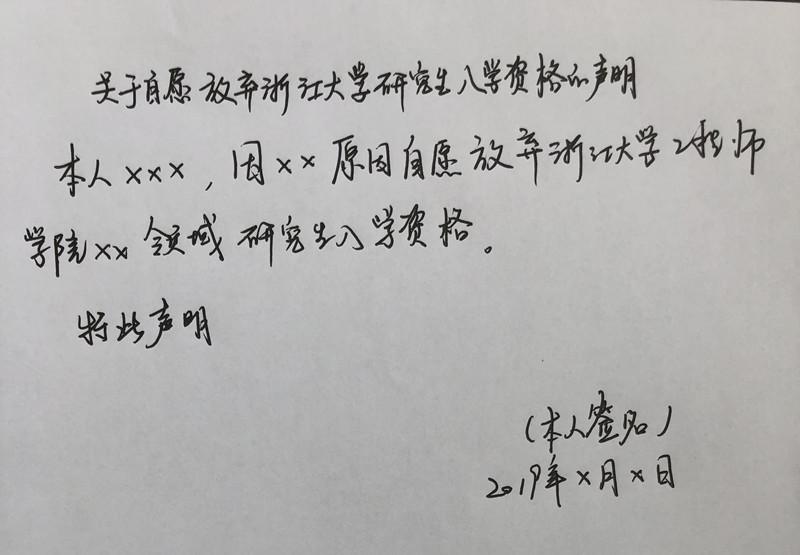 关于自愿放弃浙江大学研究生入学资格的声明
本人×××，因××原因自愿放弃浙江大学工程师
学院××领域研究生入学资格。
特此声明
（本人签名）
2019年×月×日